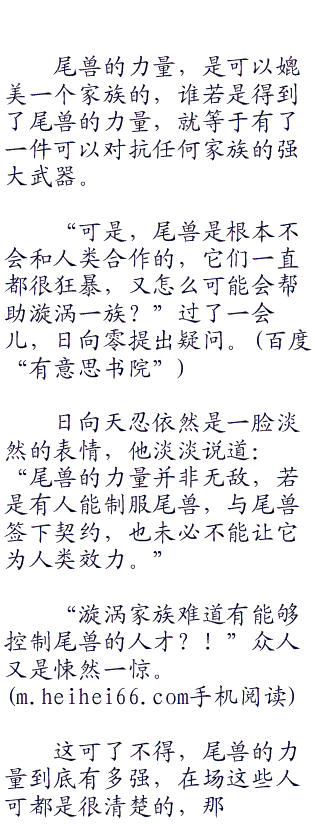 尾兽的力量，是可以媲
美一个家族的，谁若是得到
了尾兽的力量，就等于有了
一件可以对抗任何家族的强
大武器。
“可是，尾兽是根本不
会和人类合作的，它们一直
都很狂暴，又怎么可能会帮
助漩涡一族？”过了一会
儿，日向零提出疑问。(百度
“有意思书院”)
日向天忍依然是一脸淡
然的表情，他淡淡说道：
“尾兽的力量并非无敌，若
是有人能制服尾兽，与尾兽
签下契约，也未必不能让它
为人类效力。”
“漩涡家族难道有能够
控制尾兽的人才？！”众人
又是悚然一惊。
(m.heihei66.com手机阅读)
这可了不得，尾兽的力
量到底有多强，在场这些人
可都是很清楚的，那